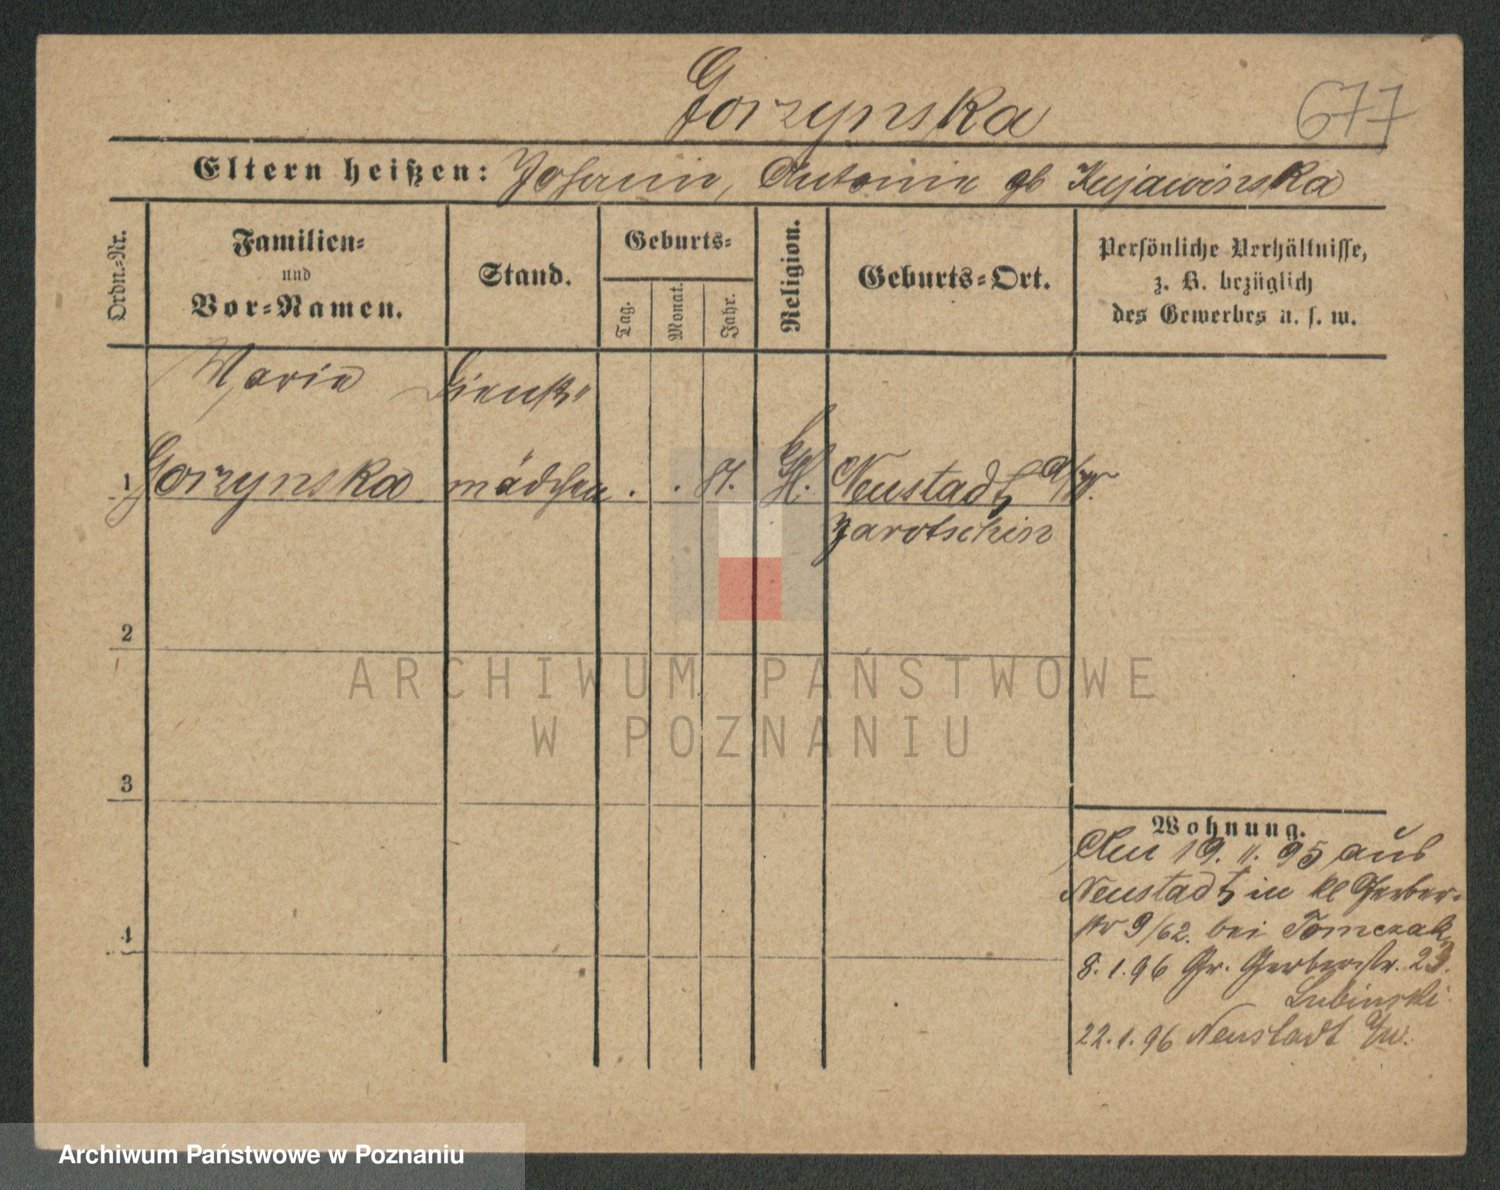 Gorzynska
677
Eltern heißen: Johann, Antonie gb Kujawinska
Ordn.-Nr.
Familien-
und
Vor-Namen.
Stand.
Geburts-
Tag.
Monat.
Jahr.
Religion.
Geburts-Ort.
Persönliche Verhältnisse,
z. B. bezüglich
des Gewerbes u. s. w.
Maria Dienst-
1 Gorzynska mädchen . . 87. Neustadt a/W.
Jarotschin
2
3
4
Wohnung.
Am 19. 11. 95 aus
Neustadt in kl Gerber-
str 9/62. bei Tomczak
8. 1. 96 Gr. Gerberstr. 23.
Lubinski
22. 1. 96 Neustadt
ARCHIWUM PAŃSTWOWE
W POZNANIU
Archiwum Państwowe w Poznaniu